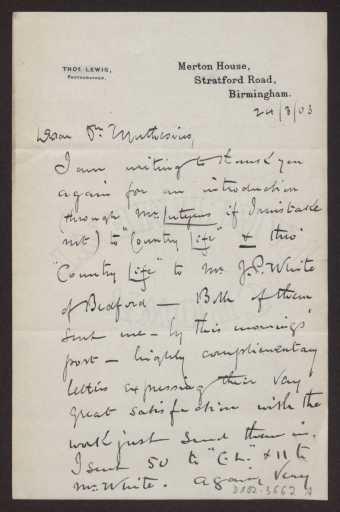 THOS. LEWIS,
PHOTOGRAPHER.
Merton House,
Stratford Road,
Birmingham.
24/3/03
Dear Dr. Muthesius,
I am writing to thank you
again for an introduction
(through Mr. Lutyens if I mistake
not) to "Country Life" & thro'
"Country Life" to Mr. J.P. White
of Bedford — Both of them
sent me — by this mornings'
post — highly complimentary
letters expressing their very
great satisfaction with the
work just send them in.
I sent 50 to "C.L." & 11 to
Mr. White. Again, very
D102-3662 A